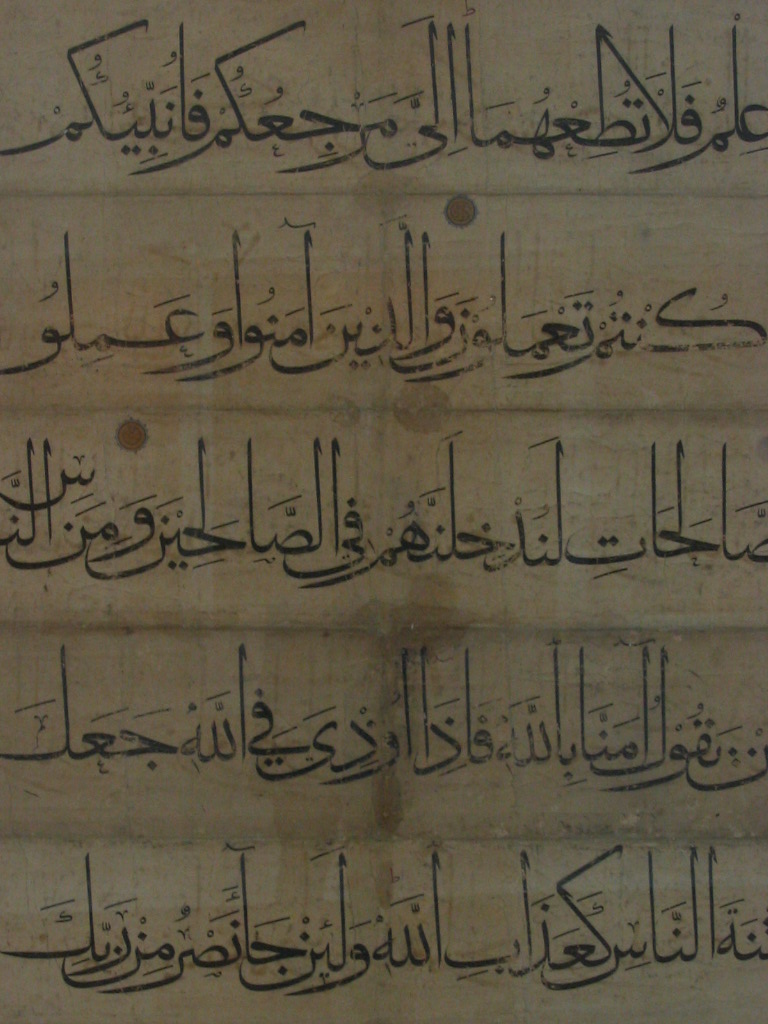 عِلْمٌ فَلَا تُطِعْهُمَا إِلَيَّ مَرْجِعُكُمْ فَأُنَبِّئُكُمْ
كُنْتُمْ تَعْمَلُونَ وَالَّذِينَ آمَنُوا وَعَمِلُو
الصَّالِحَاتِ لَنُدْخِلَنَّهُمْ فِي الصَّالِحِينَ وَمِنَ النَّاسِ
مَنْ يَقُولُ آمَنَّا بِاللَّهِ فَإِذَا أُوذِيَ فِي اللَّهِ جَعَلَ
فِتْنَةَ النَّاسِ كَعَذَابِ اللَّهِ وَلَئِنْ جَآءَ نَصْرٌ مِنْ رَبِّكَ